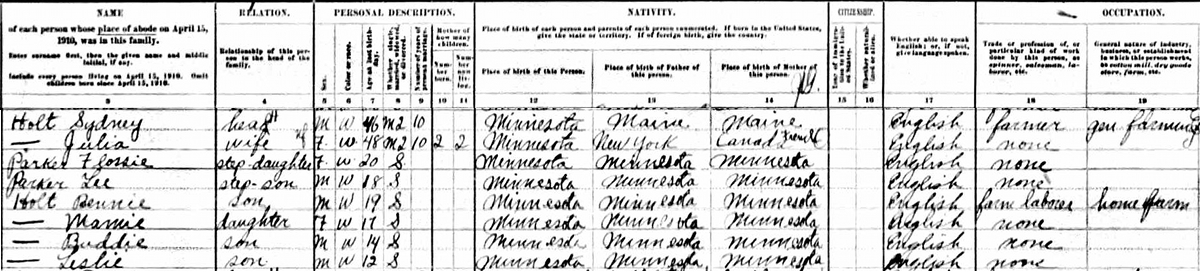 NAME RELATION. PERSONAL DESCRIPTION. NATIVITY. CITIZENSHIP. OCCUPATION.
of each person whose place of abode on April 15, 1910, was in this family.
Enter surname first, then the given name and middle initial, if any.
Include every person living on April 15, 1910. Omit children born since April 15, 1910.
Relationship of this person to the head of the family.
Sex.
Color or race.
Age at last birthday.
Whether single, married, widowed, or divorced.
Number of years of present marriage.
Mother of how many children.
Number born.
Number now living.
Place of birth of each person and parents of each person enumerated. If born in the United States, give the state or territory. If of foreign birth, give the country.
Place of birth of this Person.
Place of birth of Father of this person.
Place of birth of Mother of this person.
Year of immigration to the United States.
Whether naturalized or alien.
Whether able to speak English; or, if not, give language spoken.
Trade or profession of, or particular kind of work done by this person, as spinner, salesman, laborer, etc.
General nature of industry, business, or establishment in which this person works, as cotton mill, dry goods store, farm, etc.
3 4 5 6 7 8 9 10 11 12 13 14 15 16 17 18 19
Holt Sydney head M W 46 M2 10 Minnesota Maine Maine English farmer gen farming
— Julia wife F W 48 M2 10 2 2 Minnesota New York Canad French English none
Parker Flossie step-daughter F W 20 S Minnesota Minnesota Minnesota English none
Parker Lee step-son M W 18 S Minnesota Minnesota Minnesota English none
Holt Bennie son M W 19 S Minnesota Minnesota Minnesota English farm laborer home farm
— Mamie daughter F W 17 S Minnesota Minnesota Minnesota English none
— Buddie son M W 14 S Minnesota Minnesota Minnesota English none
— Leslie son M W 12 S Minnesota Minnesota Minnesota English none